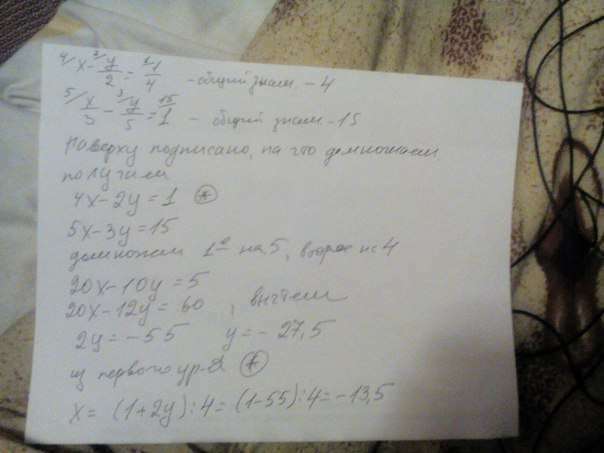 4/ x - 2/ y/2 = 1/ 1/4 - общий знам. - 4
5/ x/3 - 3/ y/5 = 15/ 1 - общий знам - 15
Наверху подписано, на что домножаем,
получим
4x - 2y = 1 (*)
5x - 3y = 15
домножим 1е на 5, второе на 4
20x - 10y = 5
20x - 12y = 60 , вычтем
2y = -55 y = -27,5
из первого ур-я (*)
x = (1+2y):4 = (1-55):4 = -13,5